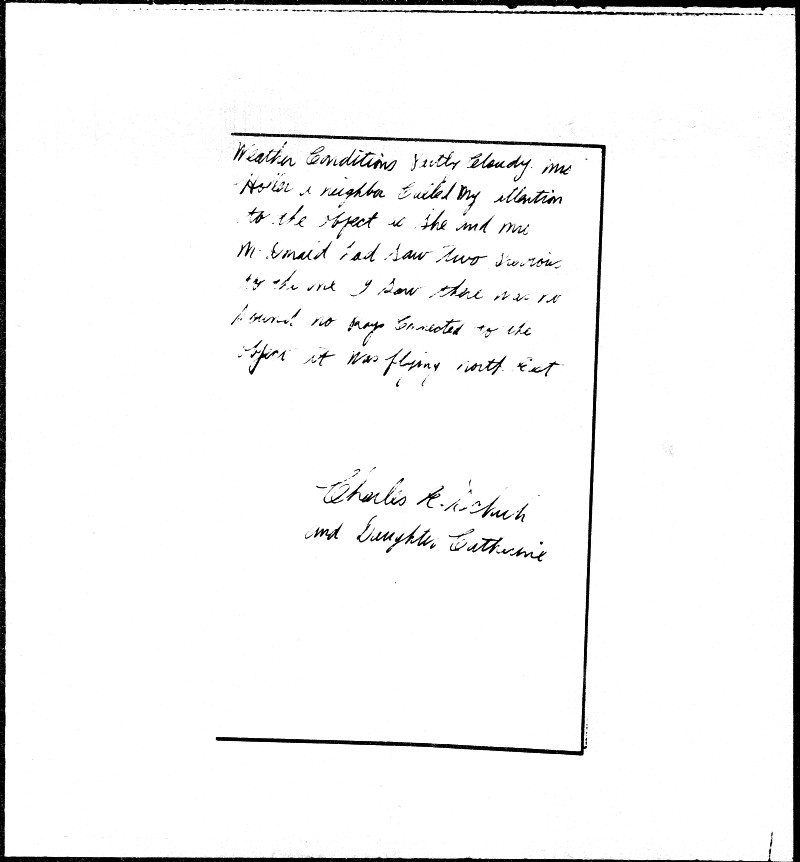 Weather Conditions Partly Cloudy. Mrs
a neighbor Called My attention
to the object as she and Mrs
had Saw Two Previous
to the one I Saw there was no
sound no Connected to the
object it was flying north East
Charles R.
and Daughter Catherine